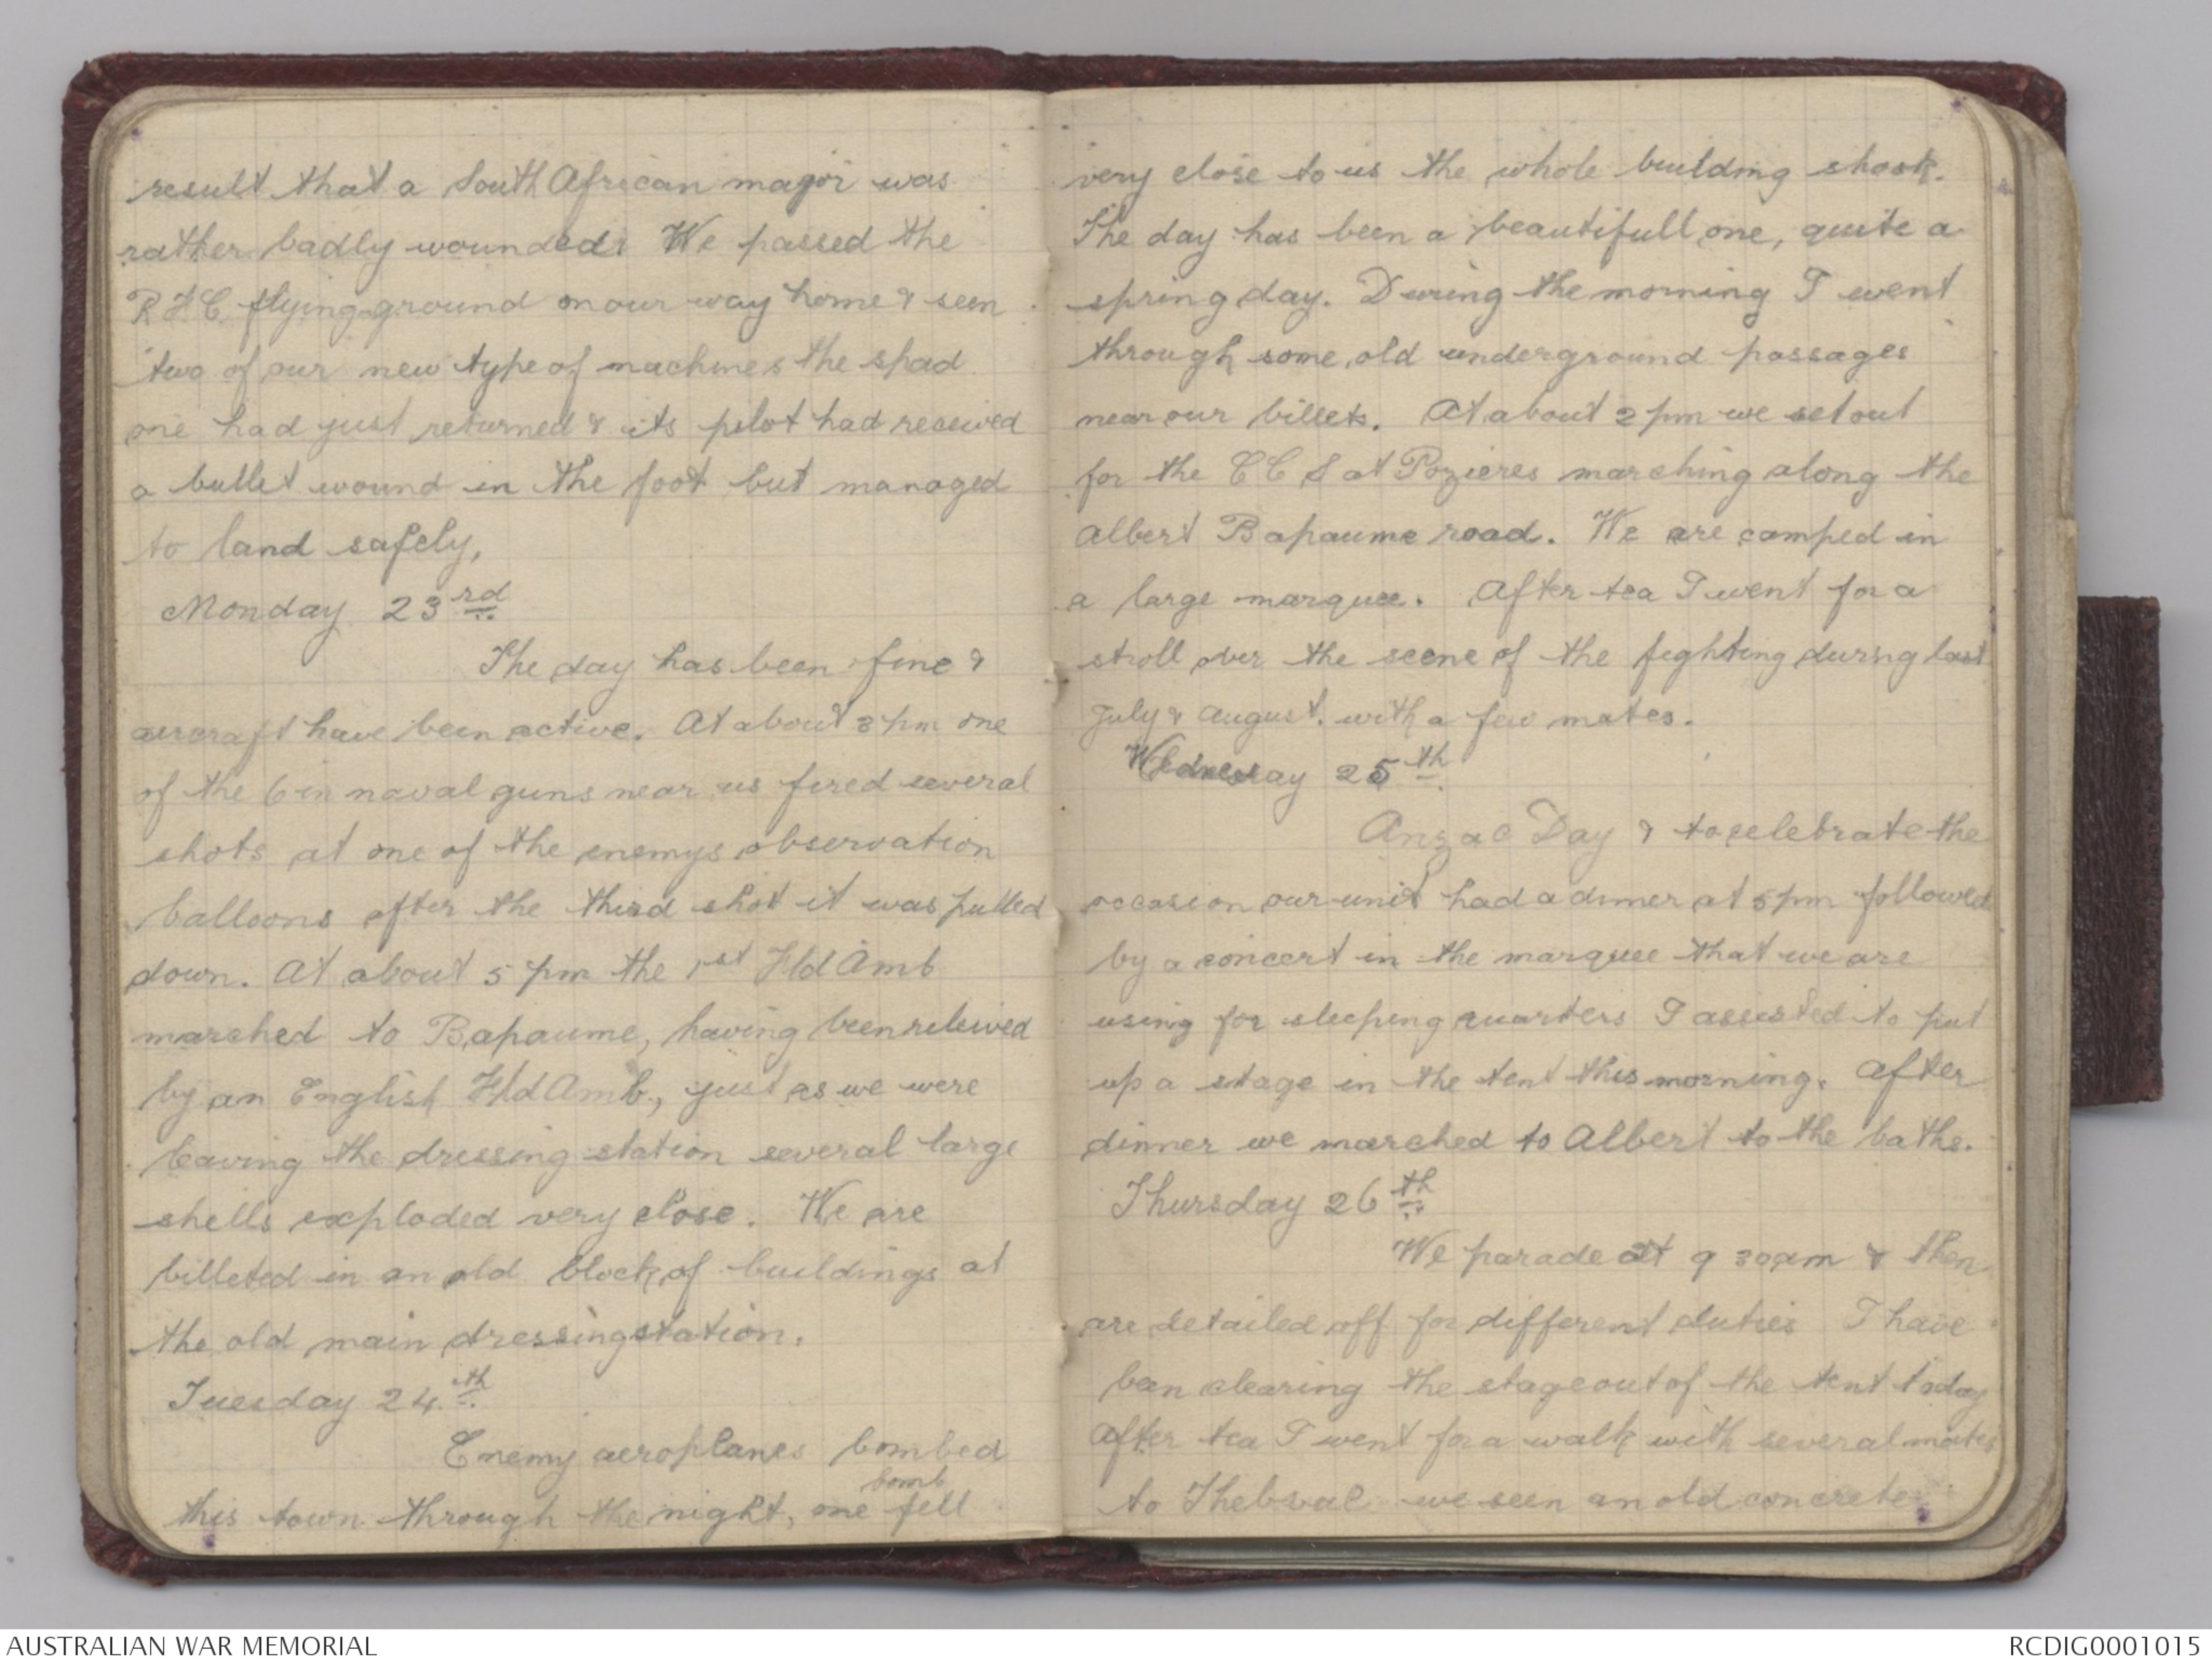 result that a South African magor was
rather badly wounded. We passed the
R.F.C. flying ground on our way home & seen
two of our new type of machines the spad
one had just returned & its pilot had received
a bullet wound in the foot but managed
to land safely,
Monday 23rd
The day has been fine &
aircraft have been active. At about 3 pm one
of the 6in naval guns near us fired several
shots at one of the enemys observation
balloons after the third shot it was pulled
down. At about 5 pm the 1st Fld Amb
marched to Bapaume, having been releived
by an English Fld Amb., just as we were
leaving the dressing station several large
shells exploded very close. We are
billeted in an old block of buildings at
the old main dressing station.
Tuesday 24th
Enemy aeroplanes bombed
bomb
this town through the night, one fell
very close to us the whole building shook.
The day has been a beautifull one, quite a
spring day. During the morning I went
through some old underground passages
near our billets. At about 2 pm we set out
for the CCS at Pozieres marching along the
Albert Bapaume road. We are camped in
a large marquee. After tea I went for a
stroll over the scene of the fighting during last
July & August. with a few mates.
Wednesday 25th
Anzac Day & to celebrate the
occasion our unit had a dinner at 5 pm followed
by a concert in the marquee that we are
using for sleeping quarters I assisted to put
up a stage in the tent this morning. After
dinner we marched to Albert to the baths.
Thursday 26th
We parade at 9 30am & then
are detailed off for different duties I have
been clearing the stage out of the tent today
After tea I went for a walk with several mates
to Thebval we seen an old concrete
AUSTRALIAN WAR MEMORIAL
RCDIG0001015